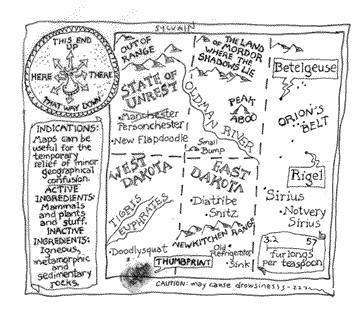 SYLVAIN
THIS END
UP
HERE
THERE
THAT WAY DOWN
INDICATIONS:
Maps can be
useful for the
temporary
relief of minor
geographical
confusion.
ACTIVE
INGREDIENTS:
Mammals
and plants
and stuff.
INACTIVE
INGREDIENTS:
Igneous,
metamorphic
and
sedimentary
rocks.
OUT OF
RANGE
THE LAND
OF MORDOR
WHERE THE
SHADOWS LIE
STATE OF
UNREST
Manchester
Personchester
New Flapdoodle
OLDMAN RIVER
PEAK
4800
Small
Bump
Betelgeuse
ORION'S
BELT
Rigel
Sirius
Notvery
Sirius
WEST
DAKOTA
TIGRIS
EUPHRATES
Doodlysquat
EAST
DAKOTA
Diatribe
Snitz
NEWKITCHEN RANGE
Old
Refrigerator
Sink
THUMBPRINT
3.2
57
furlongs
per teaspoon
CAUTION: may cause drowsinesss-zzz